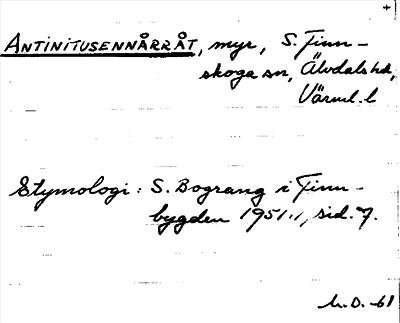 +
ANTINITUSENNÅRRÅT, myr, S. Finn-
skoga sn, Älvdals hd,
Värml. l
Etymologi: S. Bograng i Finn-
bygden 1951:1, sid. 7.
h.D. -61